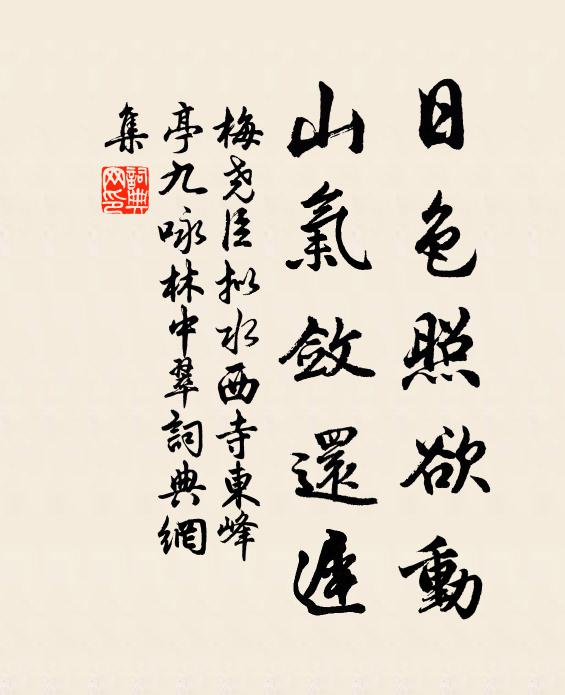 日色照欲動
山氣斂還遲
梅堯臣拟水西寺東峰
亭九咏林中翠詞典網
集
詞典
网印